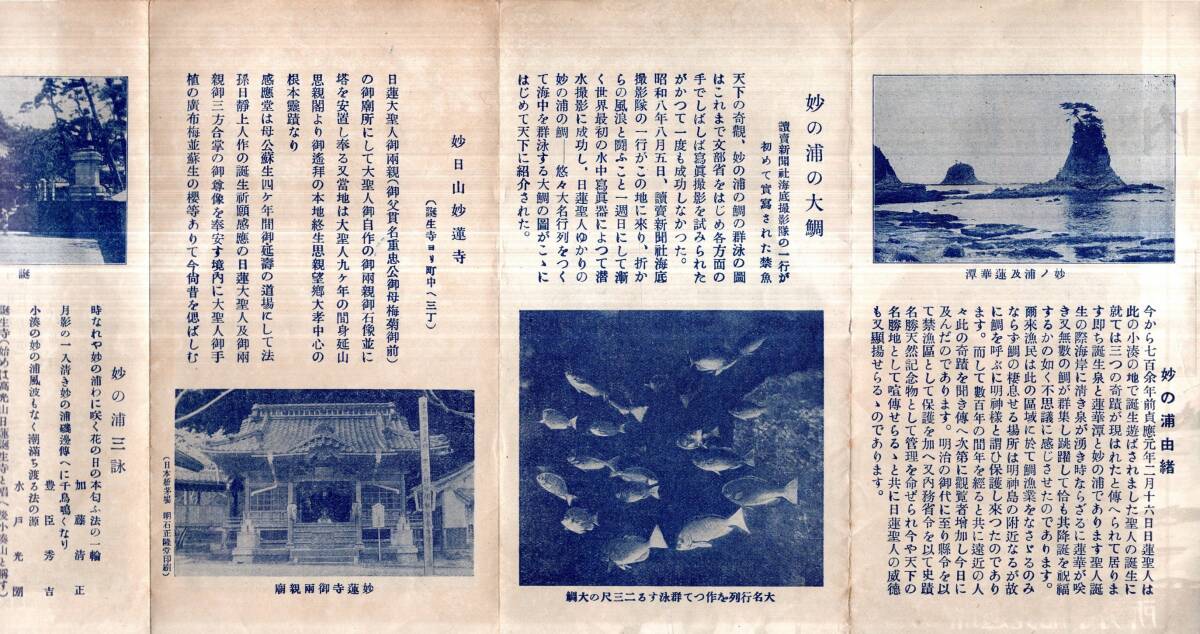 妙の浦由緒
今から七百余年前貞應元年二月十六日日蓮聖人は
此の小湊の地で誕生遊ばされました聖人の誕生に
就ては三つの奇蹟が現はれたと傳へられて居りま
す即ち誕生泉と蓮華潭と妙の浦であります聖人誕
生の際海岸に清き泉が湧き時ならざるに蓮華が咲
き又無數の鯛が群集し跳躍して恰も其降誕を祝福
するかの如く不思議に感じさせたのであります。
爾來漁民は此の區域に於て鯛漁業をなさゞるのみ
ならず鯛の棲息せる場所は明神島の附近なるが故
に鯛を呼ぶに明神様と謂ひ保護し來つたのであり
ます。而して數百年の間年を經ると共に遠近の人
々此の奇蹟を聞き傳へ次第に觀覽者增加し今日に
及んだのであります。明治の御代に至り縣令を以
て禁漁區として保護を加へ又內務省令を以て史蹟
名勝天然記念物として管理を命ぜられ今や天下の
名勝地として喧傳せらるゝと共に日蓮聖人の威德
も又顯揚せらるゝのであります。
妙ノ浦及蓮華潭
妙の浦の大鯛
讀賣新聞社海底撮影隊の一行が
初めて實寫された禁魚
天下の奇觀、妙の浦の鯛の群泳の圖
はこれまで文部省をはじめ各方面の
手でしばしば寫眞撮影を試みられた
がかつて一度も成功しなかつた。
昭和八年八月五日、讀賣新聞社海底
撮影隊の一行がこの地に來り、折か
らの風浪と鬪ふこと一週日にして漸
く世界最初の水中寫眞器によつて潜
水撮影に成功し、日蓮聖人ゆかりの
妙の浦の鯛――悠々大名行列をつく
て海中を群泳する大鯛の圖がこゝに
はじめて天下に紹介された。
大名行列を作つて群泳する二三尺の大鯛
妙日山妙蓮寺
(誕生寺ヨリ町中へ三丁)
日蓮大聖人御兩親(御父貫名重忠公御母梅菊御前)
の御廟所にして大聖人御自作の御兩親御石像並に
塔を安置し奉る又當地は大聖人九ヶ年の間身延山
思親閣より御遙拜の本地終生思親望鄕大孝中心の
根本靈蹟なり
感應堂は母公蘇生四ヶ年間御延壽の道場にして法
孫日靜上人作の誕生祈願感應の日蓮大聖人及御兩
親御三方合掌の御尊像を奉安す境內に大聖人御手
植の廣布梅並蘇生の櫻等ありて今尙昔を偲ばしむ
妙蓮寺御兩親廟
(日本橋茅場 明石正隆堂印刷)
誕
妙の浦三詠
時なれや妙の浦わに咲く花の日の本匂ふ法の一輪
加藤清正
月影の一入清き妙の浦磯邊傳へに千鳥鳴くなり
豊臣秀吉
小湊の妙の浦風波もなく潮滿ち渡る法の源
水戶光圀
誕生寺(始めは高光山日蓮誕生寺と唱へ後小湊山と稱す)